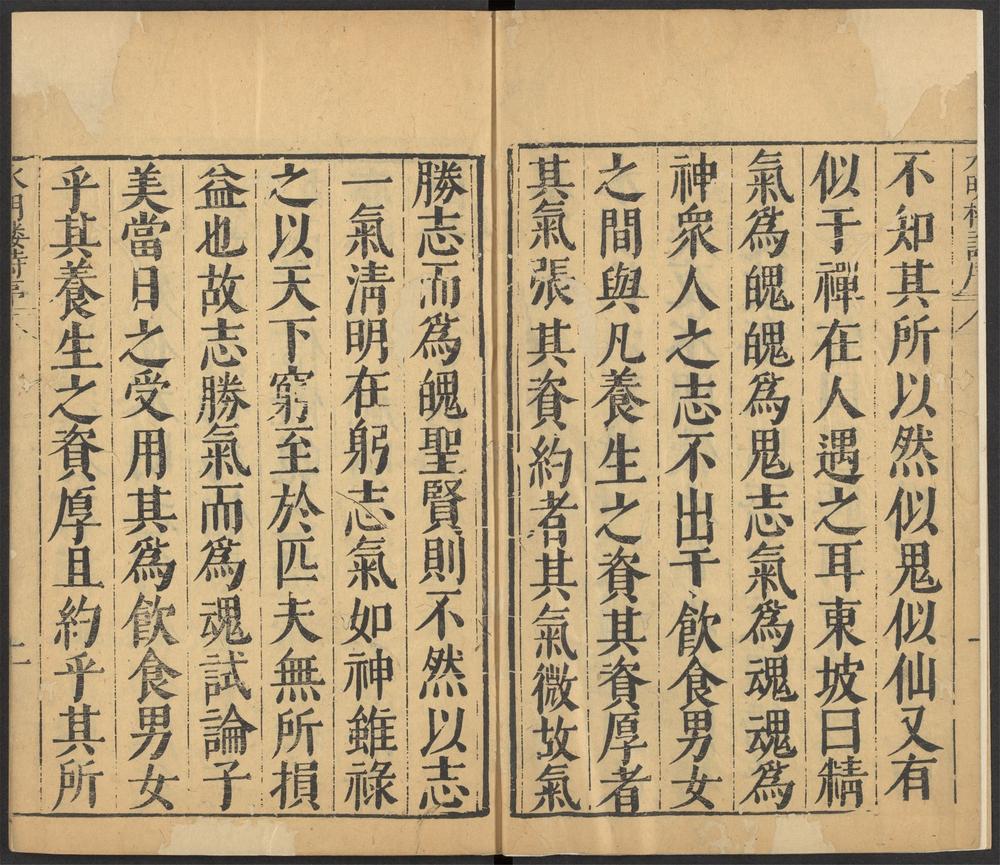 不知其所以然似鬼似仙又有
似于禪在人遇之耳東坡曰精
氣爲魄魄爲鬼志氣爲魂魂爲
神衆人之志不出于飲食男女
之間與凡養生之資其資厚者
其氣張其資約者其氣微故氣
勝志而爲魄聖賢則不然以志
一氣淸明在躬志氣如神雖祿
之以天下窮至於匹夫無所損
益也故志勝氣而爲魂試論子
美當日之受用其爲飲食男女
乎其養生之資厚且約乎其所
二